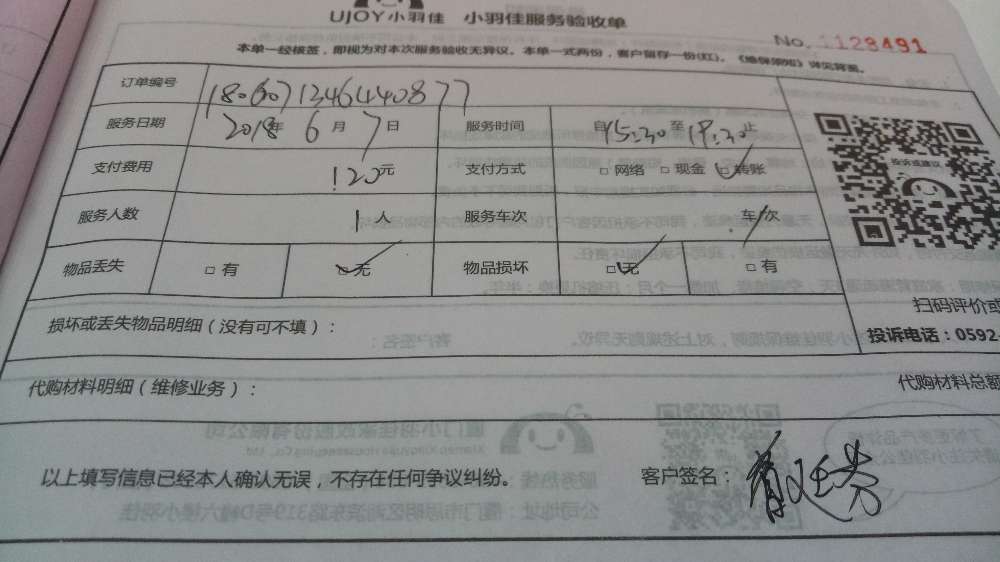 UJOY小羽佳 小羽佳服务验收单
No. 1128491
本单一经核签，即视为对本次服务验收无异议。本单一式两份，客户留存一份(红)。《维保须知》详见背面。
订单编号 180607134644087 7
服务日期 2018年 6 月 7 日 服务时间 自15:30至17:30止
支付费用 120元 支付方式 □ 网络 □ 现金 □ 转账
服务人数 1 人 服务车次 / 车/次
物品丢失 □ 有 □ 无 物品损坏 □ 无 □ 有
投诉或建议
扫码评价或
投诉电话：0592-
损坏或丢失物品明细（没有可不填）：
代购材料明细（维修业务）： 代购材料总额
以上填写信息已经本人确认无误，不存在任何争议纠纷。 客户签名：